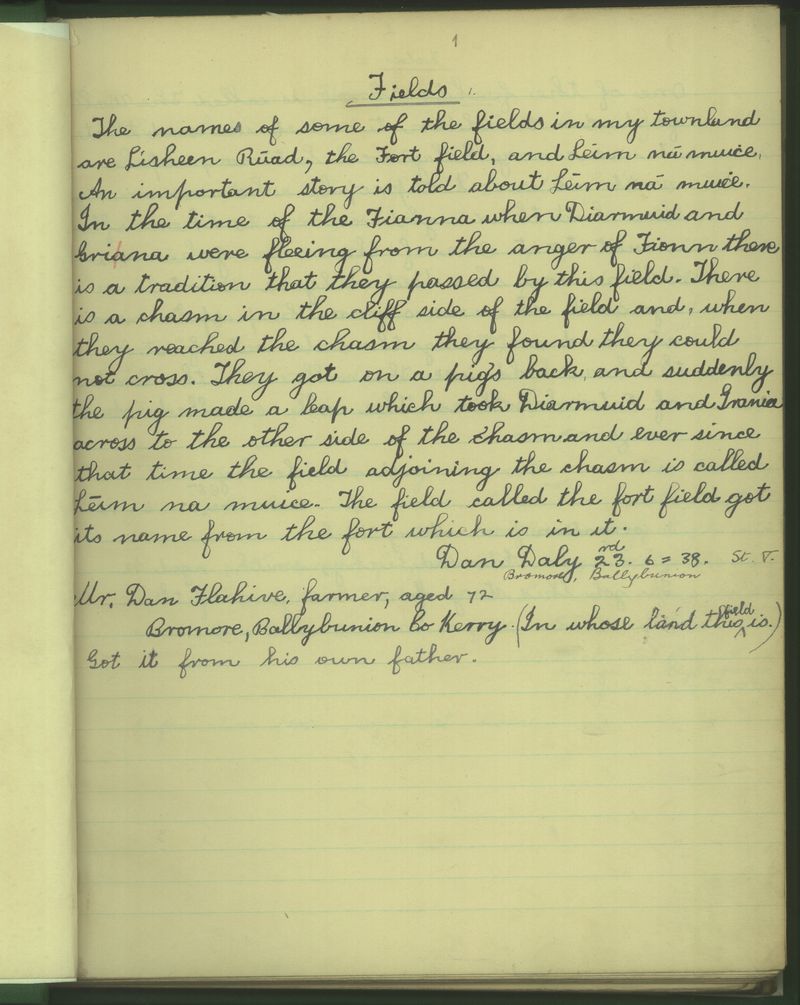 1
Fields
The names of some of the fields in my townland
are Lisheen Rúad, the Fort field, and Léim ná muice.
An important story is told about Léim ná muice.
In the time of the Fianna when Diarmuid and
Griana were fleeing from the anger of Fionn there
is a tradition that they passed by this field. There
is a chasm in the cliff side of the field and, when
they reached the chasm they found they could
not cross. They got on a pig's back, and suddenly
the pig made a leap which took Diarmuid and Grania
across to the other side of the chasm and ever since
that time the field adjoining the chasm is called
Léim na muice. The field called the fort field got
its name from the fort which is in it.
Dan Daly 23rd. 6 = 38. St. V.
Bromore, Ballybunion
Mr. Dan Flahive, farmer, aged 72
Bromore, Ballybunion Co Kerry. (In whose land this field is.)
Got it from his own father.